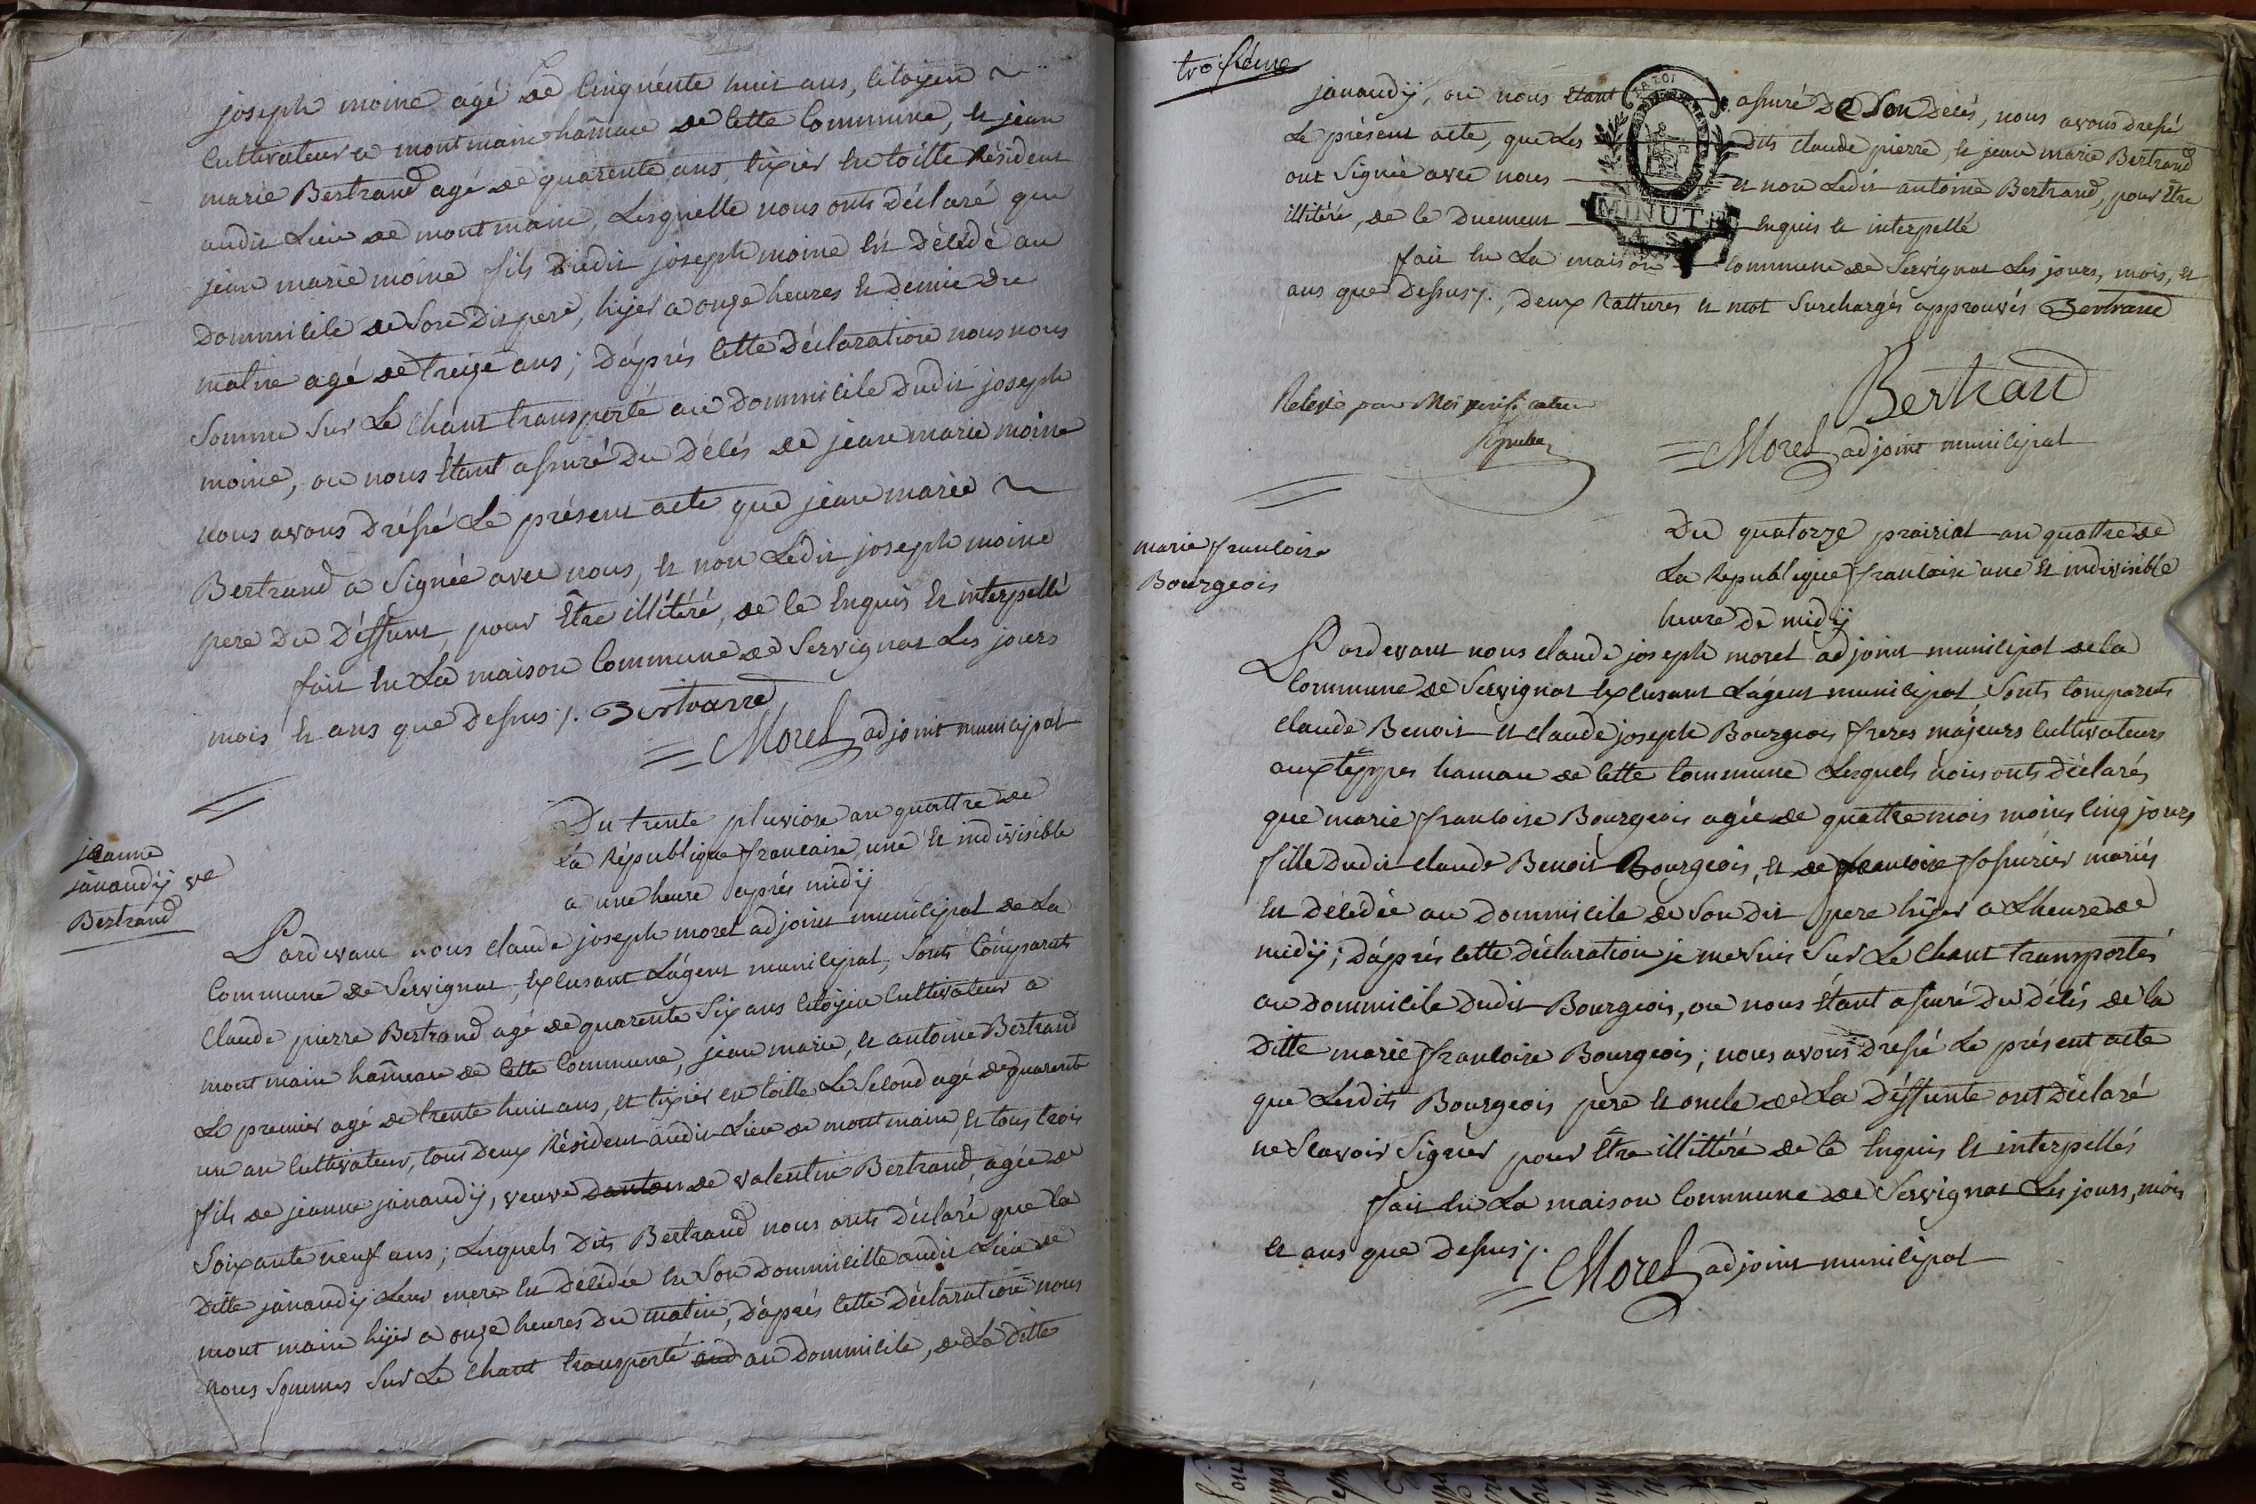 joseph moine agé de Cinquente huit ans, Citoyen
Cultivateur a montmain hâmeau de Cette Commune, et jean
marie Bertrand agé de quarente ans, tixier en toille Résident
audit Lieu de montmain, Lesquelle nous onts Déclaré que
jean marie moine fils dudit joseph moine est Décédé au
Dommicile de Son Dit pere, hijer a onze heures et Demie du
matin agé de treize ans; D'áprés Cette Déclaration nous nous
Somme Sur Le Chant transporté au Dommicile Dudit joseph
moine, ou nous Etant assuré du Décés de jean marie moine
nous avons Dréssé Le présent acte que jean marie
Bertrand a Signée avec nous, et non Ledit joseph moine
pere du Déffunt pour Être illitéré, de Ce Enquis et interpellé
fait en La maison Commune de Servignat Les jours
mois et ans que Dessus ./. Bertrand
Morel adjoint municipal
jeanne
janaudÿ ve
Bertrand
Du trente pluviose an quattre de
La République francaise une et indivisible
a une heure aprés midÿ
Pardevant nous claude joseph morel adjoint municipal de La
Commune de Servignat, Excusant L'ágent municipal, Sonts Cómparants
Claude pierre Bertrand agé de quarente Six ans Citoÿen Cultivateur a
mont main hâmeau de Cette Commune, jean marie, et antoine Bertrand
Le premier agé de trente huit ans, et tixier en toille Le Second agé de quarente
un an Cultivateur, tous Deux Résident audit Lieu de montmain, et tous trois
fils de jeanne janaudÿ, veuve de valentin Bertrand, agée de
Soixante neuf ans; Lesquels Dits Bertrand nous onts déclaré que la
Ditte janaudÿ Leur mere est décédée en Son Dommicille audit Lieu de
mont main hijer a onze heures du matin, D'áprés Cette Déclaration nous
nous Sommes Sur Le Chant transporté au dommicile, de La Ditte
troisieme
janaudÿ, ou nous Etant assuré De Son Décés, nous avons Dressé
Le présent acte, que Les Dits Claude pierre, et jean marie Bertrand
ont Signée avec nous et non Ledit antoine Bertrand, pour Etre
illitéré, de Ce Duement Enquis et interpellé
MINUTE
fait en La maison Commune de Servignat Les jours, mois, et
ans que Dessus ./. , Deux Rattures et mot Surchargés approuvés Bertrand
Bertrand
Morel adjoint municipal
marie francoise
Bourgeois
Du quatorze prairial an quattre de
La République francaise une et indivisible
heure de midÿ
Pardevant nous claude joseph morel adjoint municipal de la
Commune de Servignat Excusant L'ágent municipal Sonts Comparents
Claude Benoit et claude joseph Bourgeois freres majeurs Cultivateurs
hameau de Cette Commune Lesquels nous onts déclarés
que marie francoise Bourgeois agée de quattre mois moins Cinq jours
fille dudit claude Benoit Bourgeois, et de francoise mariés
est décédée au Dommicile de Son dit pere hÿer a L'heure de
midÿ; D'áprés Cette déclaration je me Suis Sur Le Chant transportés
au Dommicile dudit Bourgeois, ou nous Étant assuré du Décés de la
Ditte marie francoise Bourgeois; nous avons Dressé Le présent acte
que Lesdits Bourgeois père et oncle de La Déffunte ont Déclaré
ne Scavoir Signer pour Être illittéré de Ce Enquis et interpellés
fait en La maison Commune de Servignat Les jours, mois
et ans que Dessus ./.
Morel adjoint municipal